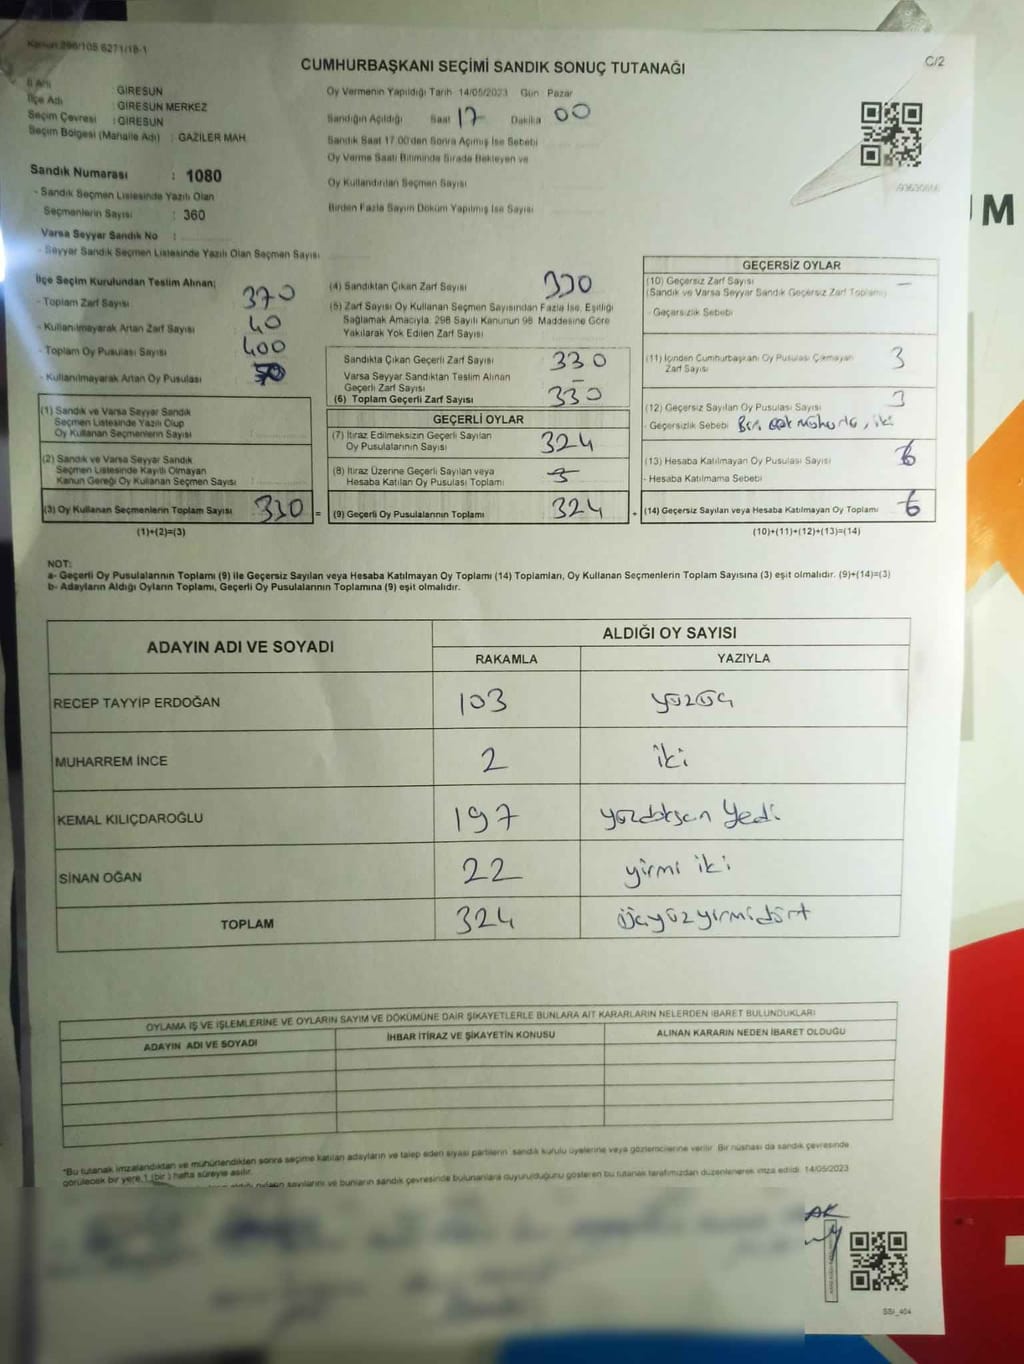 Kanun 298/105 6271/18-1
CUMHURBAŞKANI SEÇİMİ SANDIK SONUÇ TUTANAĞI
C/2
İl Adı : GİRESUN
İlçe Adı : GİRESUN MERKEZ
Seçim Çevresi : GİRESUN
Seçim Bölgesi (Mahalle Adı) : GAZİLER MAH.
Sandık Numarası : 1080
- Sandık Seçmen Listesinde Yazılı Olan
Seçmenlerin Sayısı : 360
Varsa Seyyar Sandık No :
- Seyyar Sandık Seçmen Listesinde Yazılı Olan Seçmen Sayısı
Oy Vermenin Yapıldığı Tarih 14/05/2023 Gün Pazar
Sandığın Açıldığı Saat 17 Dakika 00
Sandık Saat 17.00'den Sonra Açmış İse Sebebi
Oy Verme Saati Bitiminde Sırada Bekleyen ve
Oy Kullandırılan Seçmen Sayısı
Birden Fazla Sayım Döküm Yapılmış İse Sayısı
İlçe Seçim Kurulundan Teslim Alınan;
- Toplam Zarf Sayısı 370
- Kullanılmayarak Artan Zarf Sayısı 40
- Toplam Oy Pusulası Sayısı 400
- Kullanılmayarak Artan Oy Pusulası 70
(1) Sandık ve Varsa Seyyar Sandık
Seçmen Listesinde Yazılı Olup
Oy Kullanan Seçmenlerin Sayısı
(2) Sandık ve Varsa Seyyar Sandık
Seçmen Listesinde Kayıtlı Olmayan
Kanun Gereği Oy Kullanan Seçmen Sayısı
(3) Oy Kullanan Seçmenlerin Toplam Sayısı 330 =
(1)+(2)=(3)
(4) Sandıktan Çıkan Zarf Sayısı 330
(5) Zarf Sayısı Oy Kullanan Seçmen Sayısından Fazla İse, Eşitliği
Sağlamak Amacıyla 298 Sayılı Kanunun 98 Maddesine Göre
Yakılarak Yok Edilen Zarf Sayısı
Sandıkta Çıkan Geçerli Zarf Sayısı 330
Varsa Seyyar Sandıktan Teslim Alınan
Geçerli Zarf Sayısı –
(6) Toplam Geçerli Zarf Sayısı 330
GEÇERLİ OYLAR
(7) İtiraz Edilmeksizin Geçerli Sayılan
Oy Pusulalarının Sayısı 324
(8) İtiraz Üzerine Geçerli Sayılan veya
Hesaba Katılan Oy Pusulası Toplamı
(9) Geçerli Oy Pusulalarının Toplamı 324 +
GEÇERSİZ OYLAR
(10) Geçersiz Zarf Sayısı –
(Sandık ve Varsa Seyyar Sandık Geçersiz Zarf Toplamı)
- Geçersizlik Sebebi
(11) İçinden Cumhurbaşkanı Oy Pusulası Çıkmayan
Zarf Sayısı 3
(12) Geçersiz Sayılan Oy Pusulası Sayısı 3
- Geçersizlik Sebebi
(13) Hesaba Katılmayan Oy Pusulası Sayısı
- Hesaba Katılmama Sebebi
(14) Geçersiz Sayılan veya Hesaba Katılmayan Oy Toplamı 6
(10)+(11)+(12)+(13)=(14)
NOT:
a- Geçerli Oy Pusulalarının Toplamı (9) ile Geçersiz Sayılan veya Hesaba Katılmayan Oy Toplamı (14) Toplamları, Oy Kullanan Seçmenlerin Toplam Sayısına (3) eşit olmalıdır. (9)+(14)=(3)
b- Adayların Aldığı Oyların Toplamı, Geçerli Oy Pusulalarının Toplamına (9) eşit olmalıdır.
ADAYIN ADI VE SOYADI
ALDIĞI OY SAYISI
RAKAMLA YAZIYLA
RECEP TAYYİP ERDOĞAN 103 yüzüç
MUHARREM İNCE 2 iki
KEMAL KILIÇDAROĞLU 197 yüzdoksan yedi
SİNAN OĞAN 22 yirmi iki
TOPLAM 324 üçyüzyirmidört
OYLAMA İŞ VE İŞLEMLERİNE VE OYLARIN SAYIM VE DÖKÜMÜNE DAİR ŞİKAYETLERLE BUNLARA AİT KARARLARIN NELERDEN İBARET BULUNDUKLARI
ADAYIN ADI VE SOYADI İHBAR İTİRAZ VE ŞİKAYETİN KONUSU ALINAN KARARIN NEDEN İBARET OLDUĞU
*Bu tutanak imzalandıktan ve mühürlendikten sonra seçime katılan adayların ve talep eden siyasi partilerin sandık kurulu üyelerine veya gözlemcilerine verilir. Bir nüshası da sandık çevresinde
görülecek bir yere 1 (bir) hafta süreyle asılır.
oyların sayılarını ve bunların sandık çevresinde bulunanlara duyurulduğunu gösteren bu tutanak tarafımızdan düzenlenerek imza edildi. 14/05/2023
AK
SSI_404
UM